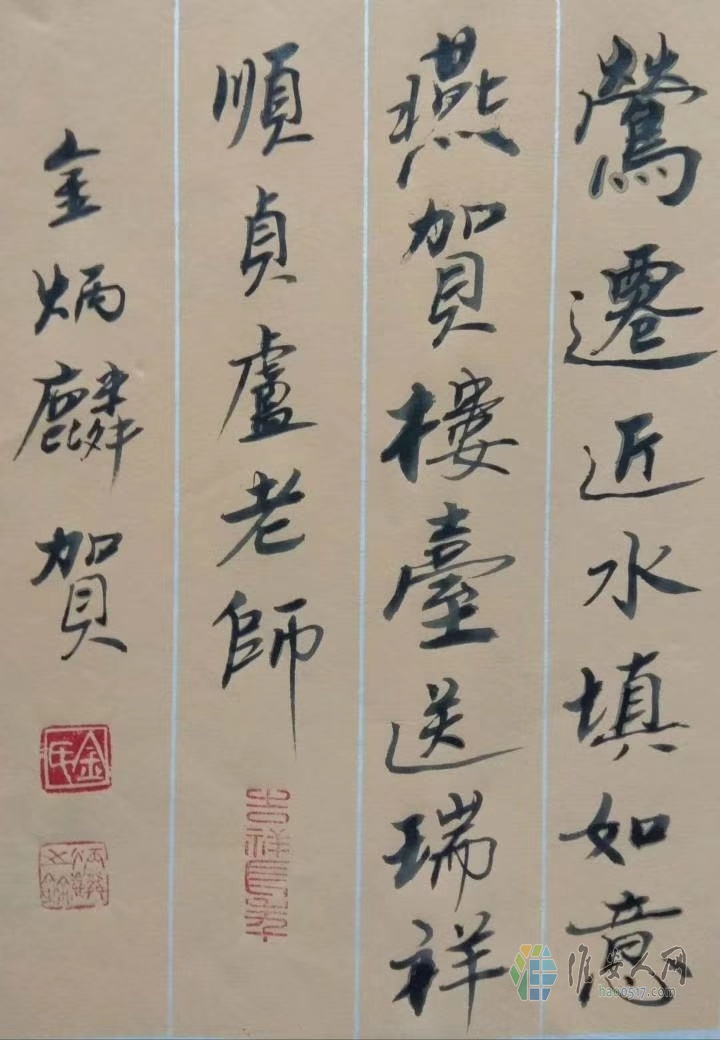 鶯遷近水填如意
燕賀樓臺送瑞祥
順貞盧老師
金炳麟賀
金氏
淮安人网
ha0517.com